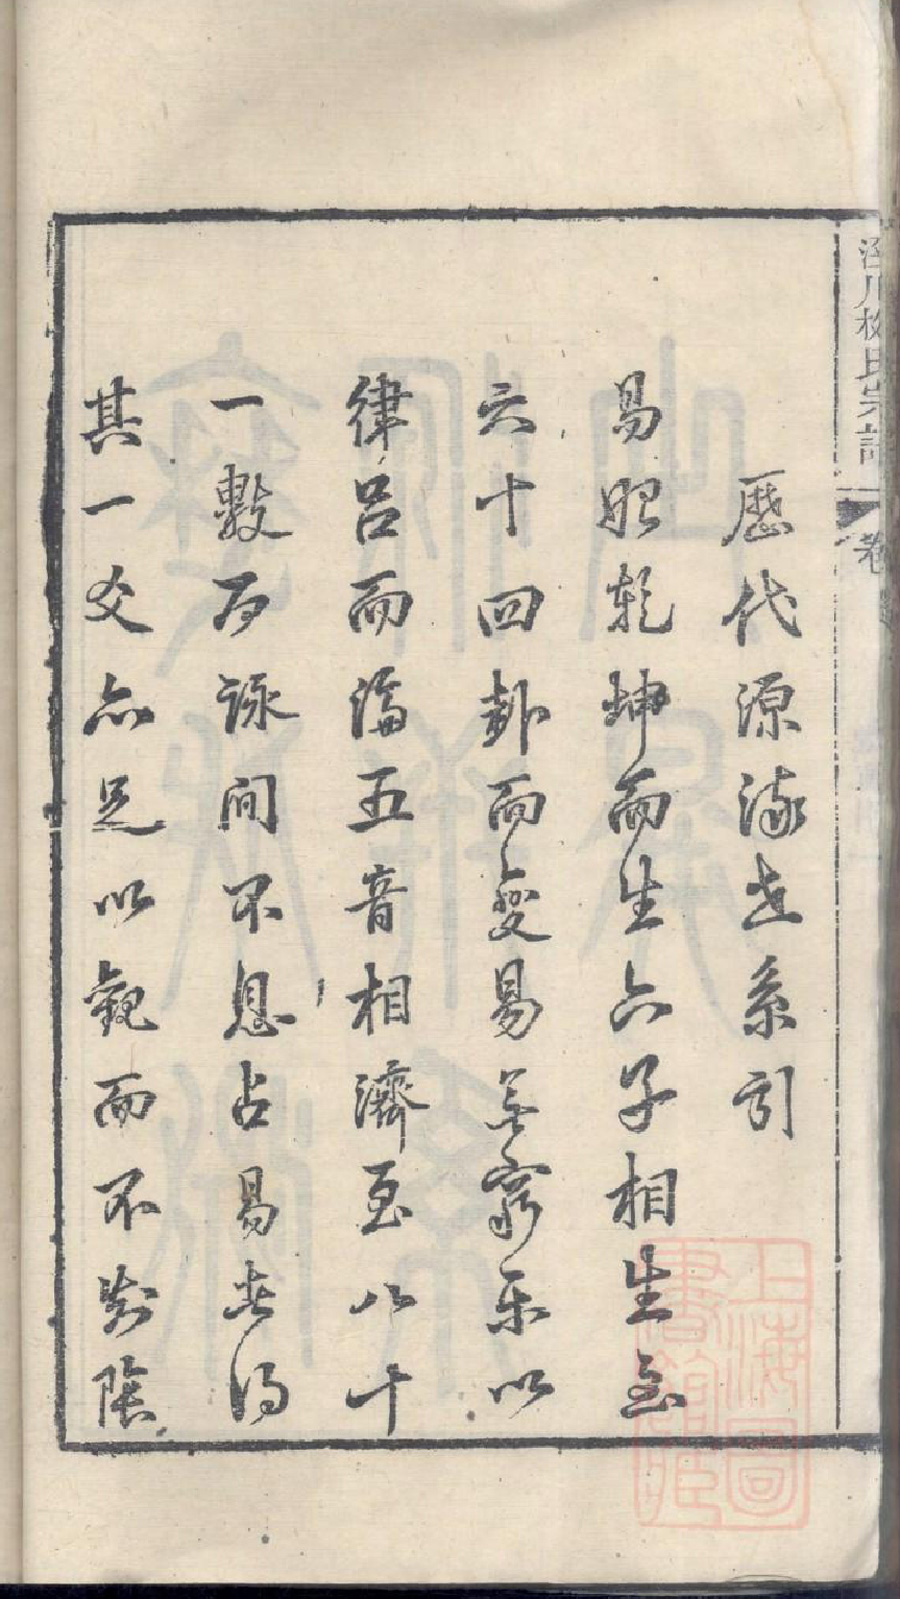 歷代源流世系引
易始乾坤而生六子相生至
六十四卦而變易无窮樂以
律呂而論五音相濟至八十
一數而詠間不息占易者得
其一爻亦足以観而不知陰
川 氏宗譜 卷
上海圖書館藏